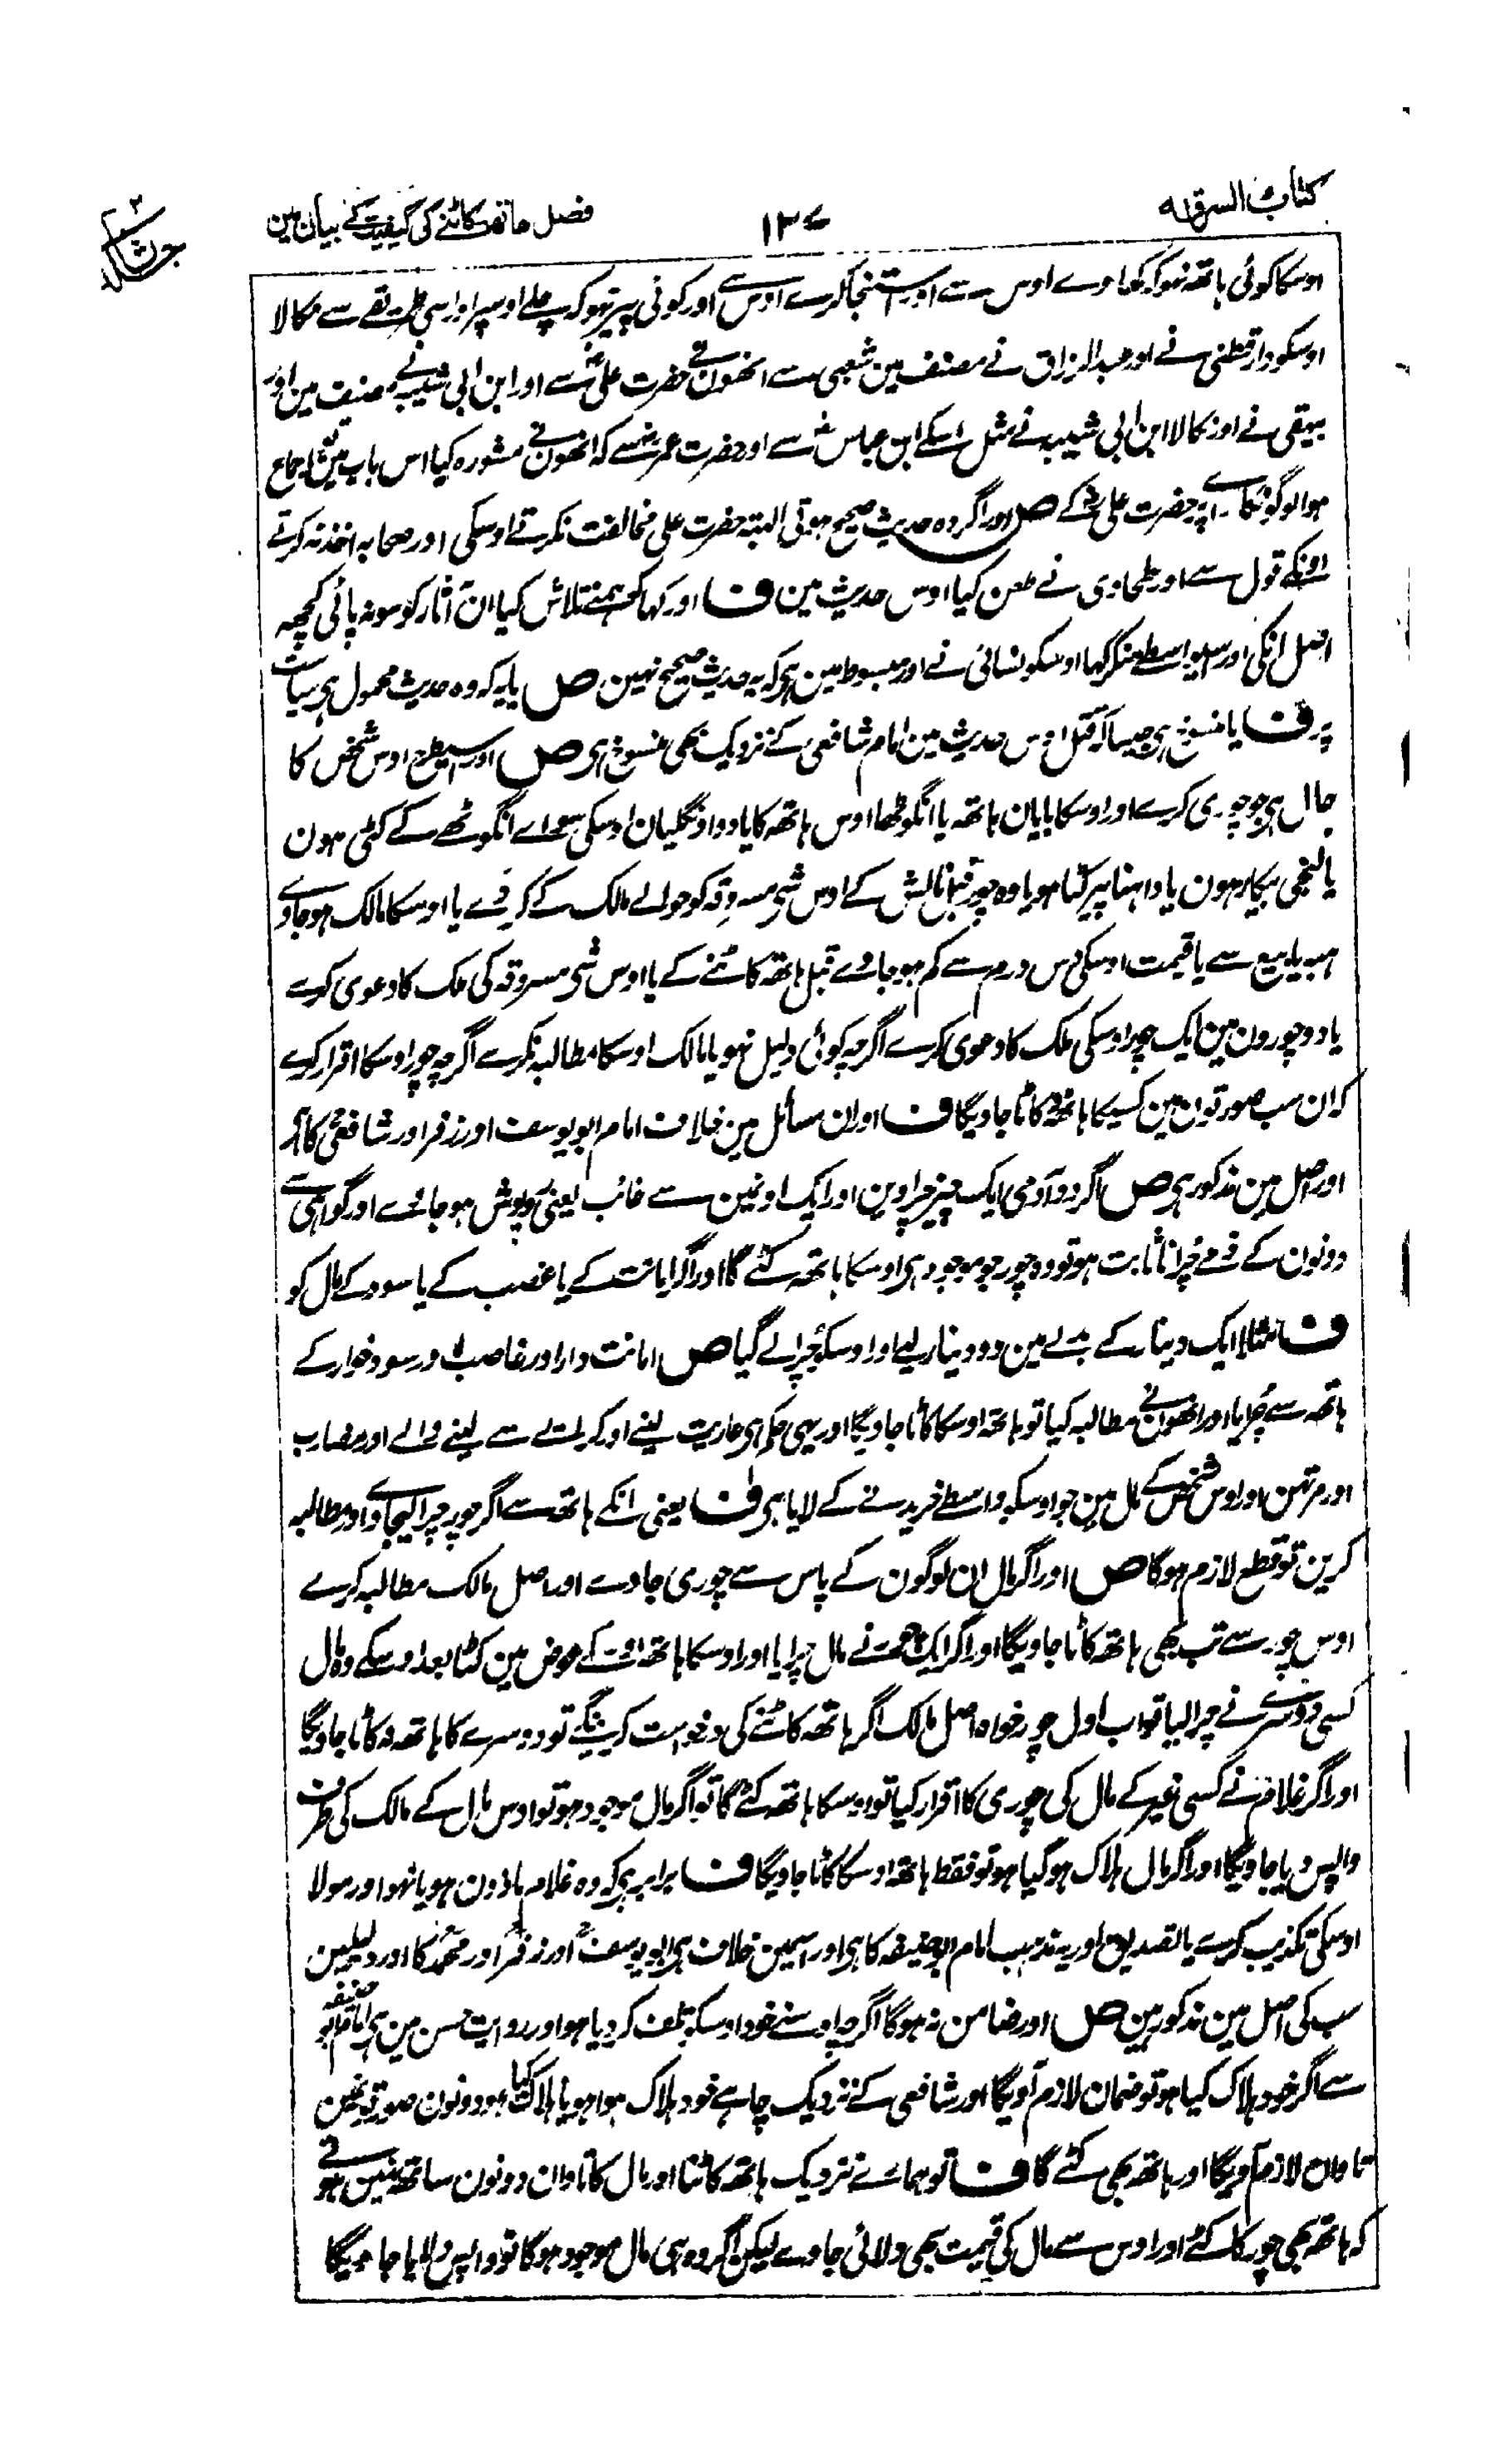 کتاب السرقہ
۱۳۷
فصل ہاتھ کاٹنے کی کیفیت کے بیان مین
اوسکا کوئی ہاتھ نہو کہ کھاوے اوس سے اور استنجا کرے اوس سے اور کوئی پیر نہو کہ چلے اوسپر اور اسی طریقے سے نکالا
اوسکو دارقطنی نے اور عبد الرزاق نے مصنف مین شعبی سے انھون نے حضرت علیؓ سے اور ابن ابی شیبہ نے مصنف مین اور
بیہقی نے اور نکالا ابن ابی شیبہ نے مثل اسکے ابن عباسؓ سے اور حضرت عمرؓ سے کہ انھون نے مشورہ کیا اس باب مین اجماع
ہوا لوگونکا راے پر حضرت علیؓ کے ص اور اگر وہ حدیث صحیح ہوتی البتہ حضرت علی مخالفت نکرتے اوسکی اور صحابہ اخذ نہ کرتے
اونکے قول سے اور طحاوی نے طعن کیا اوس حدیث مین ف اور کہا کہ ہمنے تلاش کیا ان آثار کو سو نہ پائی کچھ
اصل انکی اور اسیواسطے منکر کہا اوسکو نسائی نے اور مبسوط مین ہی کہ یہ حدیث صحیح نہین ص یا یہ کہ وہ حدیث محمول ہی سیاست
پر ف یا منسوخ ہی جیسا کہ قتل اوس حدیث مین امام شافعی کے نزدیک بھی منسوخ ہی ص اور اسیطرح اوس شخص کا
حال ہی جو چوری کرے اور اوسکا بایان ہاتھ یا انگوٹھا اوس ہاتھ کا یا دو اونگلیان اوسکی سواے انگوٹھے کے کٹی ہون
یا لنجی بیکار ہون یا داہنا پیر کٹا ہو یا وہ چور قبل نالش کے اوس شی مسروقہ کو حوالے مالک کے کردے یا اوسکا مالک ہو جاوے
ہبہ یا بیع سے یا قیمت اوسکی دس درم سے کم ہو جاوے قبل ہاتھ کاٹنے کے یا اوس شی مسروقہ کی ملک کا دعوی کرے
یا دو چورون مین ایک چور اوسکی ملک کا دعوی کرے اگرچہ کوئی دلیل نہو یا مالک اوسکا مطالبہ نکرے اگرچہ چور اوسکا اقرار کرے
کہ ان سب صورتون مین کسیکا ہاتھ نہ کاٹا جاویگا ف اور ان مسائل مین خلاف امام ابو یوسف اور زفر اور شافعیؒ کا ہی
اور اصل مین مذکور ہی ص اگر دو آدمی ایک چیز چراوین اور ایک اونمین سے غائب یعنی روپوش ہو جاوے اور گواہی سے
دونون کے ذمے چُرانا ثابت ہو تو وہ چور جو موجود ہی اوسکا ہاتھ کٹے گا اور اگر امانت کے یا غصب کے یا سود کے مال کو
ف مثلا ایک دینار کے بدلے مین دو دینار لیے اور اوسکو چُرا لے گیا ص امانت دار اور غاصب اور سود خوار کے
ہاتھ سے چُرایا اور انھون نے مطالبہ کیا تو ہاتھ اوسکا کاٹا جاویگا اور یہی حکم ہی عاریت لینے اور کرائے سے لینے والے اور مضارب
اور مرتہن اور اوس شخص کے مال مین جو اوسکو واسطے خریدنے کے لایا ہی ف یعنی انکے ہاتھ سے اگر چور چرا لیجاوے اور مطالبہ
کرین تو قطع لازم ہوگا ص اور اگر مال ان لوگون کے پاس سے چوری جاوے اور اصل مالک مطالبہ کرے
اوس چور سے تب بھی ہاتھ کاٹا جاویگا اور اگر ایک چور نے مال چرایا اور اوسکا ہاتھ اوسکے عوض مین کٹا بعد اوسکے وہ مال
کسی دوسرے نے چرا لیا تو اب اول چور خواہ اصل مالک اگر ہاتھ کاٹنے کی درخواست کرینگے تو دوسرے کا ہاتھ نہ کاٹا جاویگا
اور اگر غلام نے کسی غیر کے مال کی چوری کا اقرار کیا تو اوسکا ہاتھ کٹے گا تو اگر مال موجود ہو تو اوس مال کے مالک کی طرف
واپس دیا جاویگا اور اگر مال ہلاک ہو گیا ہو تو فقط ہاتھ اوسکا کاٹا جاویگا ف برابر ہی کہ وہ غلام ماذون ہو یا نہو اور مولا
اوسکی تکذیب کرے یا تصدیق اور یہ مذہب امام ابو حنیفہ کا ہی اور اسمین خلاف ہی ابو یوسفؒ اور زفرؒ اور محمدؒ کا اور دلیلین
سب کی اصل مین مذکور ہین ص اور ضامن نہ ہوگا اگرچہ اوسنے خود اوسکو تلف کردیا ہو اور روایت حسن مین ہی امام ابو حنیفہ
سے اگر خود ہلاک کیا ہو تو ضمان لازم آویگا اور شافعی کے نزدیک چاہے خود ہلاک ہوا ہو یا ہلاک کیا ہو دونون صورتونمین
تاوان لازم آویگا اور ہاتھ بھی کٹے گا ف تو ہمارے نزدیک ہاتھ کاٹنا اور مال کا تاوان دونون ساتھ نہین ہوتے
کہ ہاتھ بھی چور کا کٹے اور اوس سے مال کی قیمت بھی دلائی جاوے لیکن اگر وہ ہی مال موجود ہوگا تو واپس دلایا جاویگا